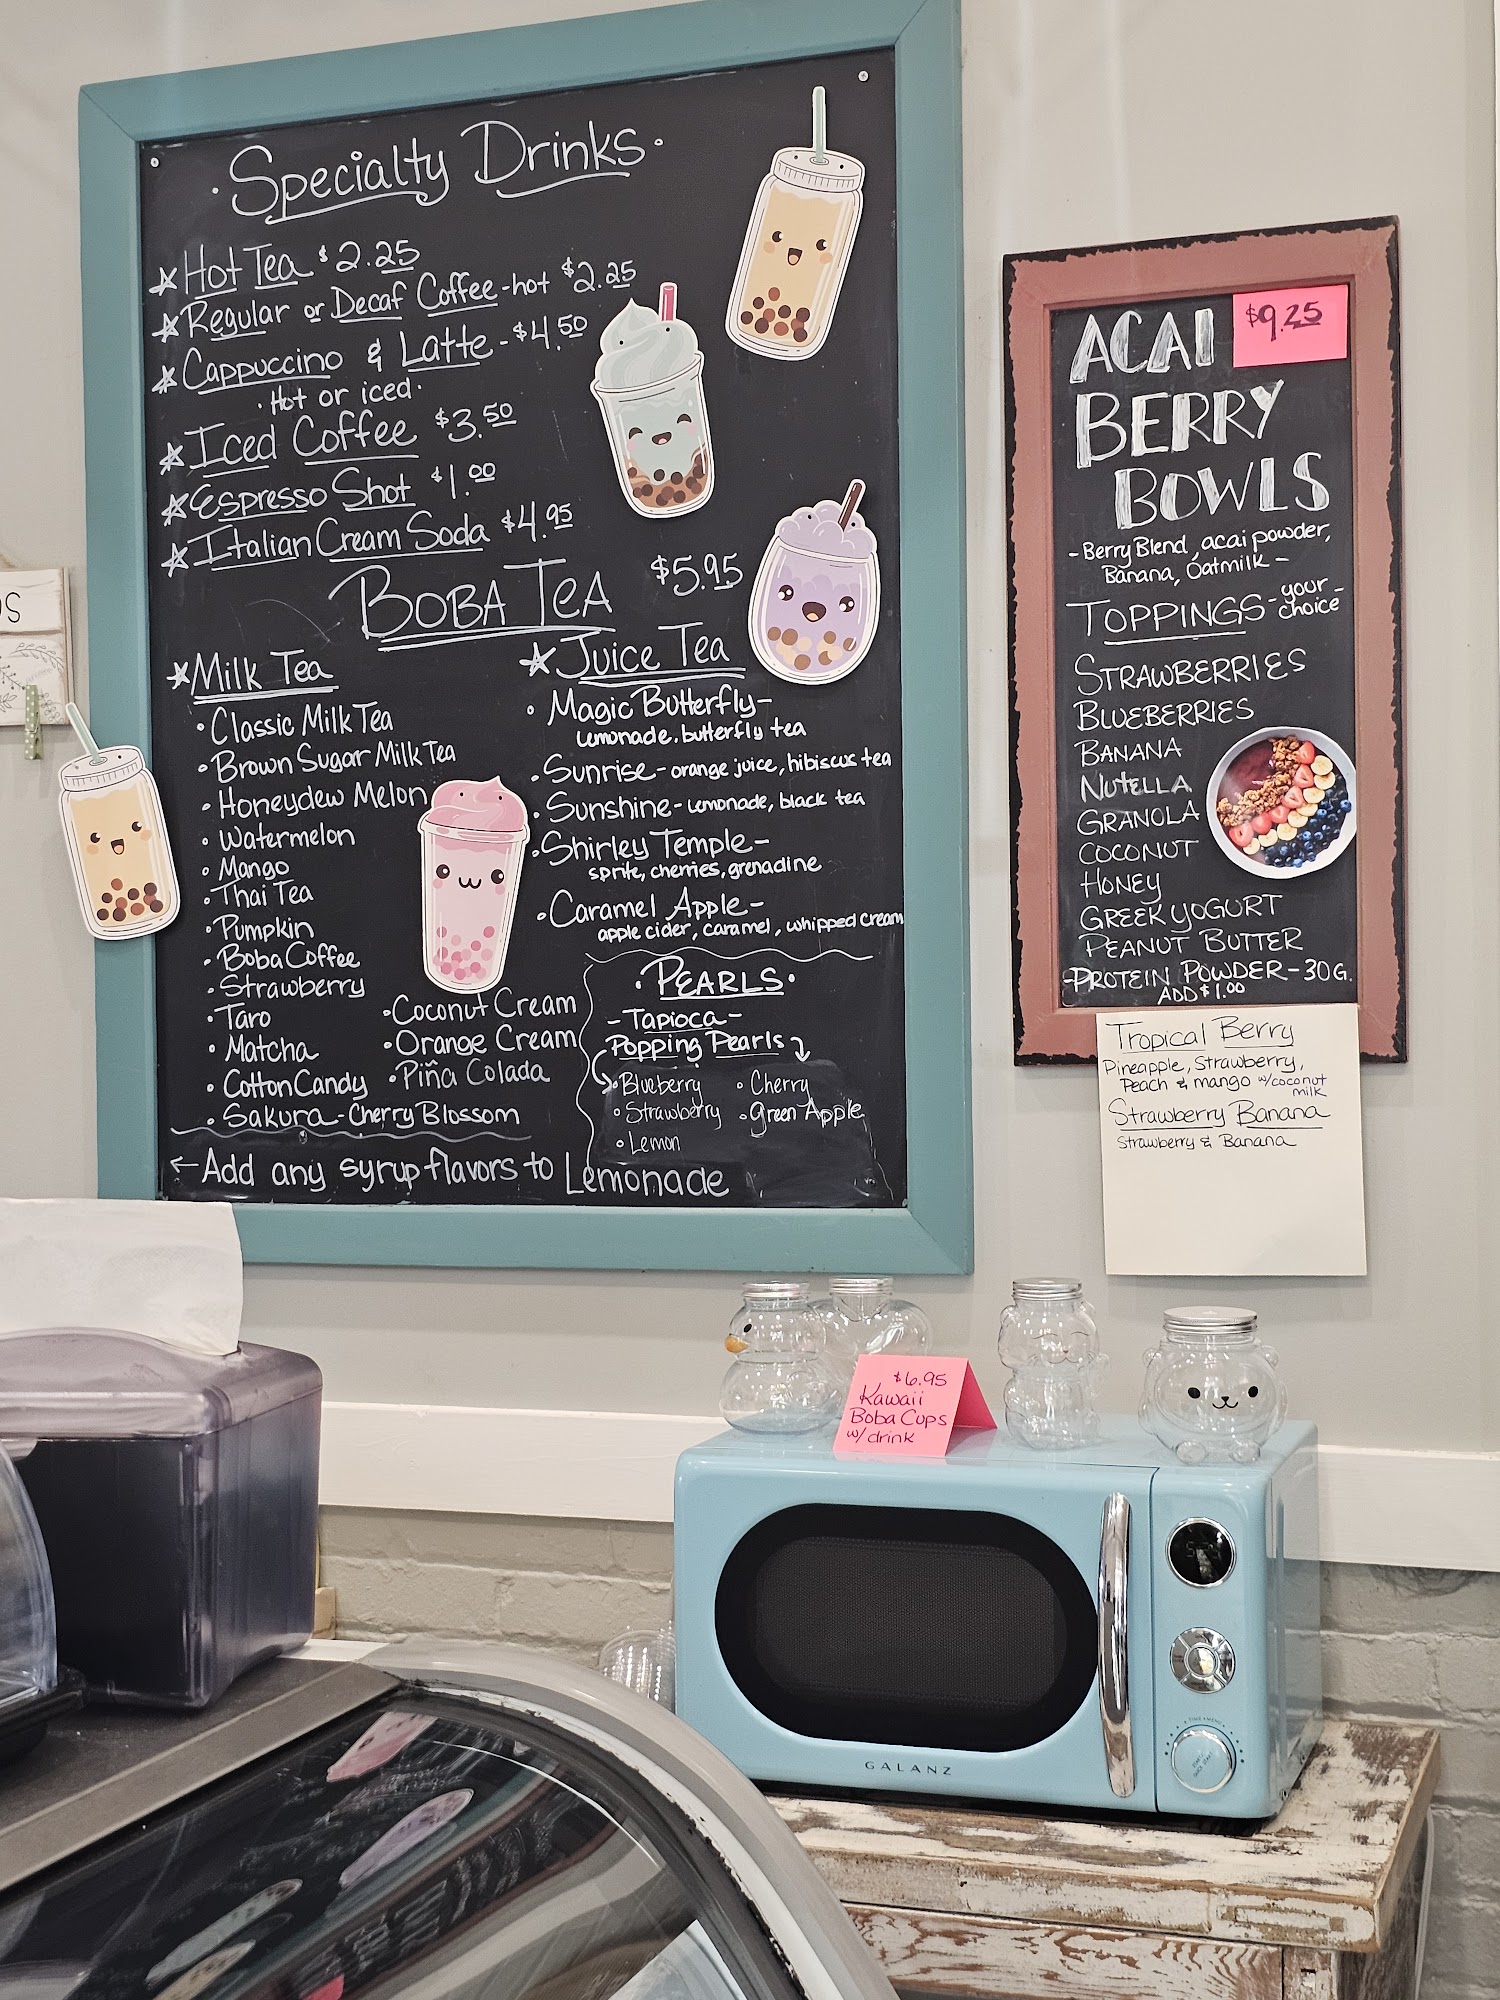 · Specialty Drinks ·
☆ Hot Tea $2.25
☆ Regular or Decaf Coffee - hot $2.25
☆ Cappuccino & Latte - $4.50
· Hot or iced ·
☆ Iced Coffee $3.50
☆ Espresso Shot $1.00
☆ Italian Cream Soda $4.95
BOBA TEA $5.95
☆ Milk Tea
• Classic Milk Tea
• Brown Sugar Milk Tea
• Honeydew Melon
• Watermelon
• Mango
• Thai Tea
• Pumpkin
• Boba Coffee
• Strawberry
• Taro
• Matcha
• Cotton Candy
• Sakura - Cherry Blossom
• Coconut Cream
• Orange Cream
• Piña Colada
☆ Juice Tea
• Magic Butterfly -
Lemonade, butterfly tea
• Sunrise - orange juice, hibiscus tea
• Sunshine - Lemonade, black tea
• Shirley Temple -
sprite, cherries, grenadine
• Caramel Apple -
apple cider, caramel, whipped cream
• PEARLS •
- Tapioca -
Popping Pearls
• Blueberry
• Strawberry
• Lemon
• Cherry
• Green Apple
← Add any syrup flavors to Lemonade
OS
ACAI
$9.25
BERRY
BOWLS
- Berry Blend, acai powder,
Banana, Oatmilk -
TOPPINGS - your choice -
STRAWBERRIES
BLUEBERRIES
BANANA
NUTELLA
GRANOLA
COCONUT
HONEY
GREEK YOGURT
PEANUT BUTTER
- PROTEIN POWDER - 30G.
ADD $1.00
Tropical Berry
Pineapple, Strawberry,
Peach & mango w/coconut milk
Strawberry Banana
Strawberry & Banana
$6.95
Kawaii
Boba Cups
w/ drink
GALANZ